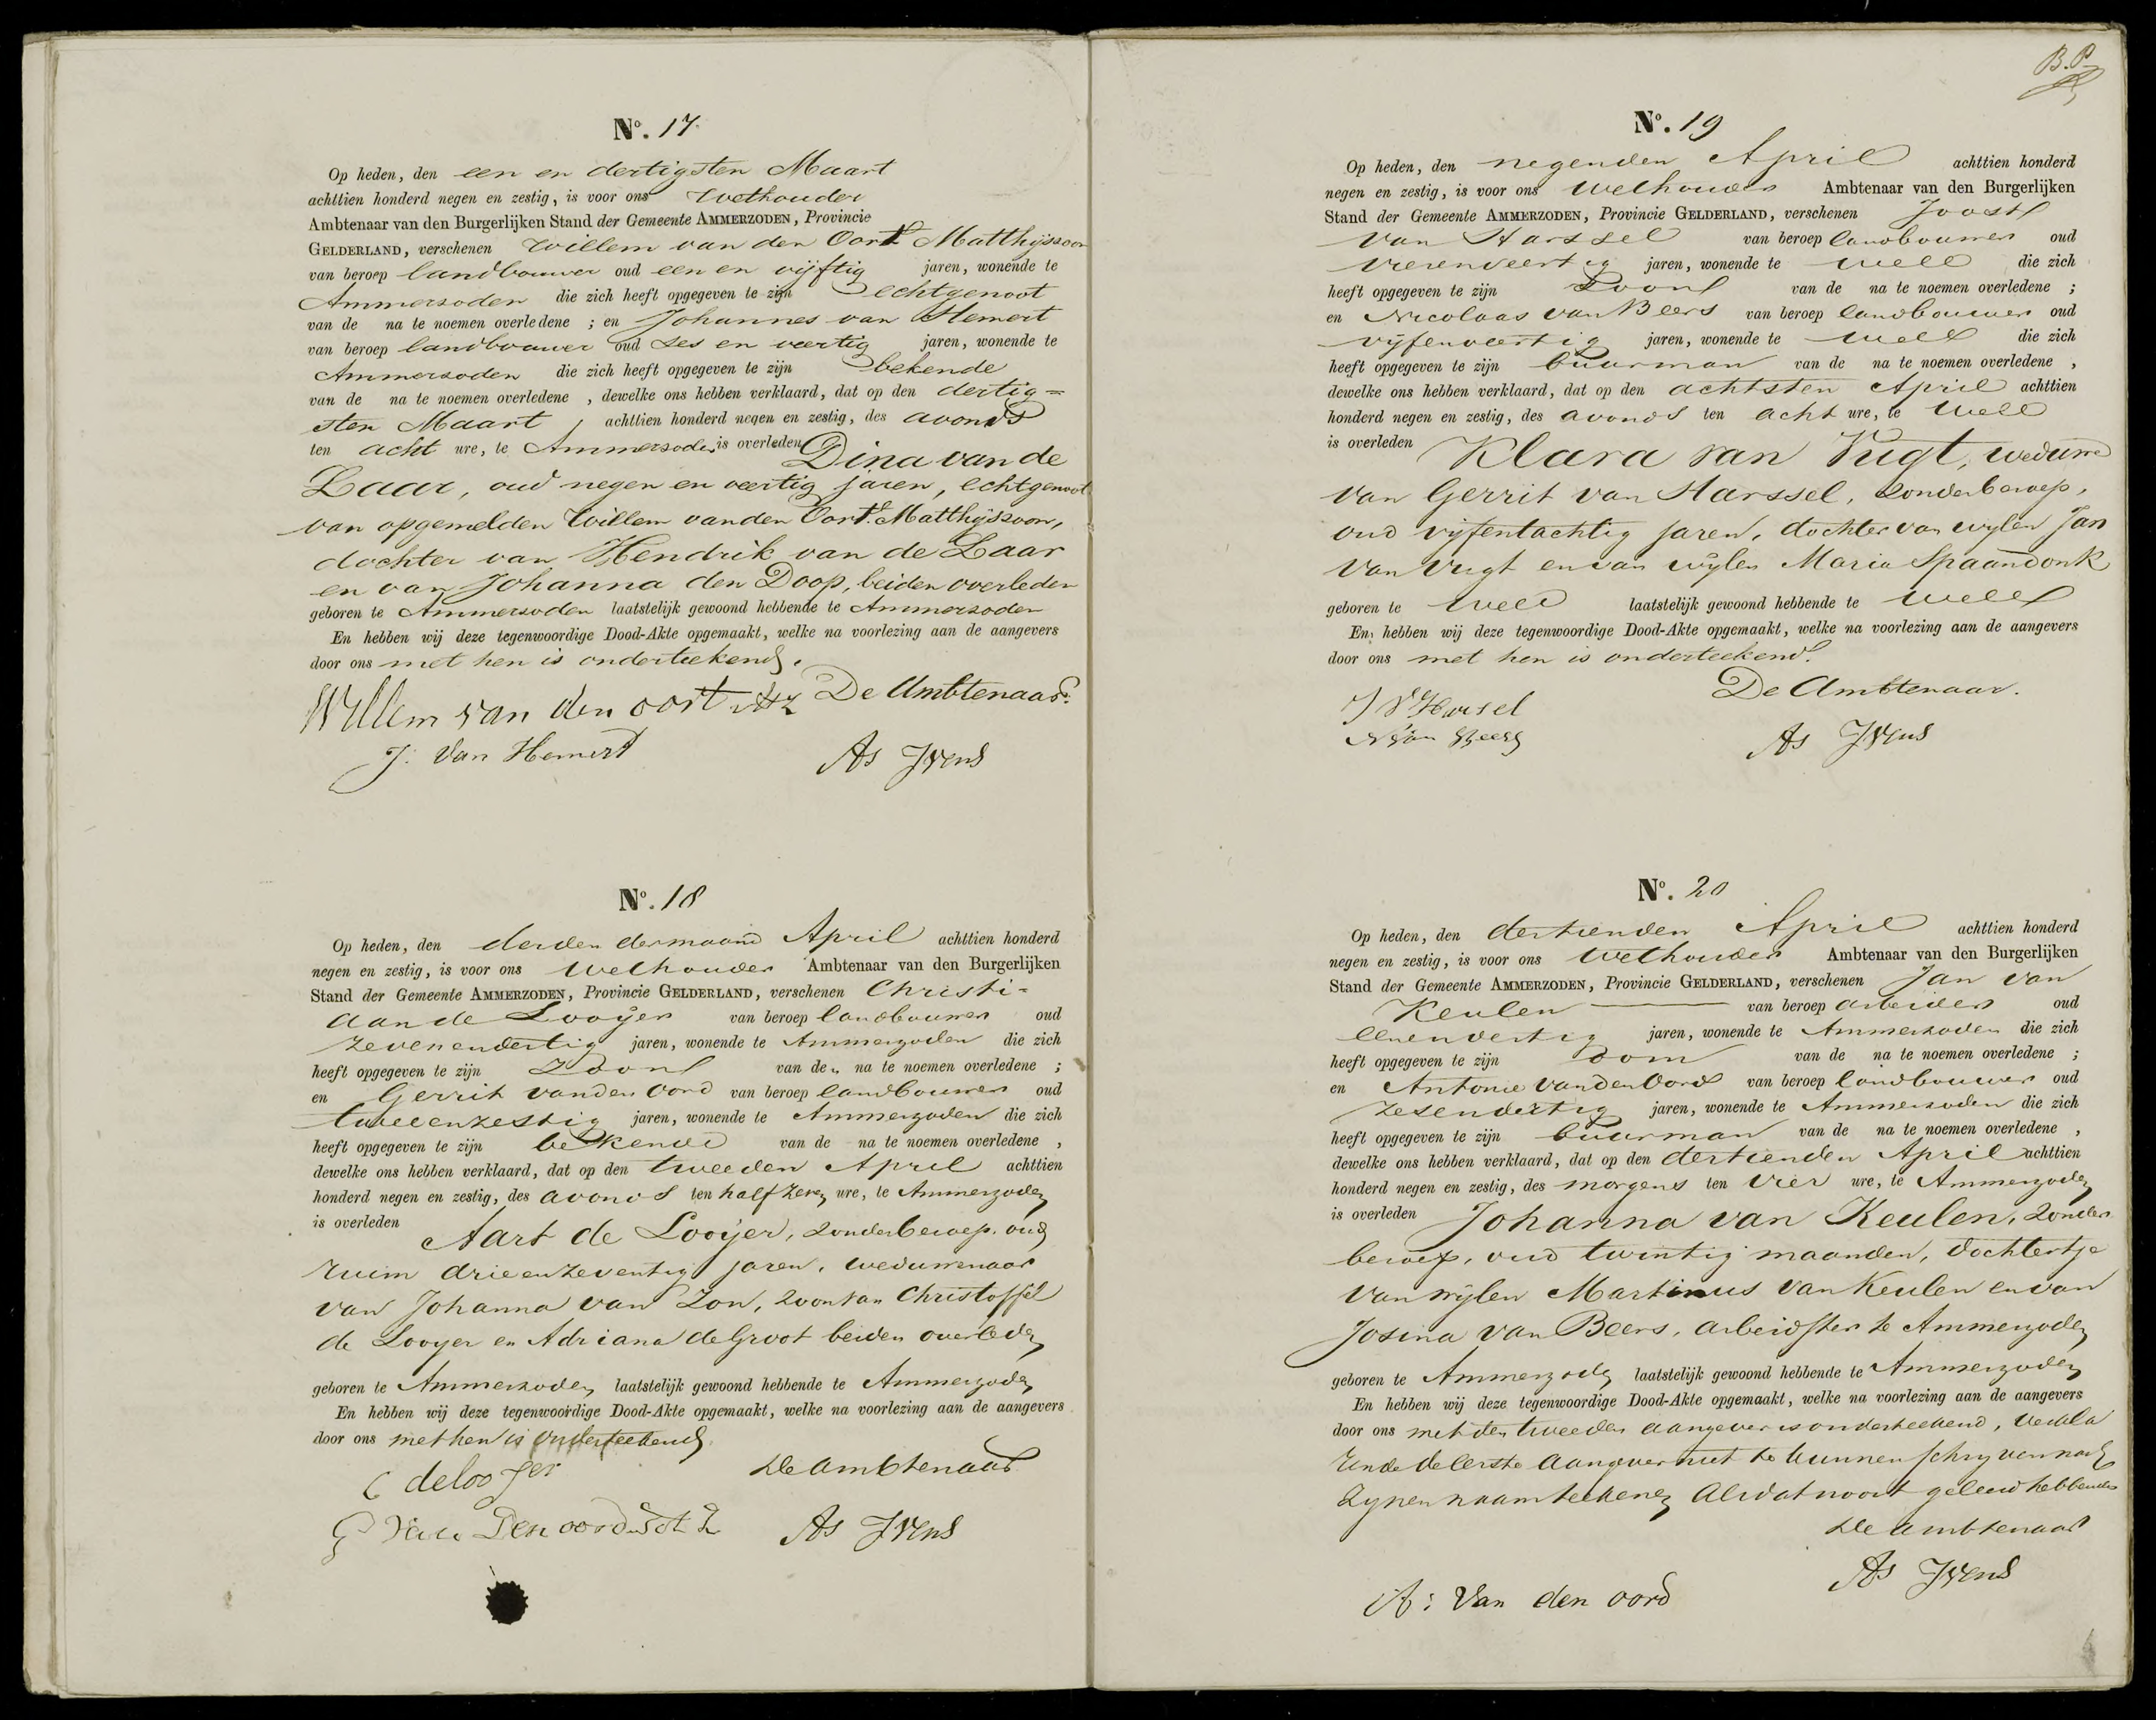 No. 17
Op heden, den een en dertigsten Maart
achttien honderd negen en zestig, is voor ons Wethouder
Ambtenaar van den Burgerlijken Stand der Gemeente AMMERZODEN, Provincie
GELDERLAND, verschenen Willem van den Oort Matthijszoon
van beroep landbouwer oud een en vijftig jaren, wonende te
Ammersoden die zich heeft opgegeven te zijn echtgenoot
van de na te noemen overledene ; en Johannes van Hemert
van beroep landbouwer oud ses en veertig jaren, wonende te
Ammersoden die zich heeft opgegeven te zijn bekende
van de na te noemen overledene , dewelke ons hebben verklaard, dat op den dertig=
sten Maart achttien honderd negen en zestig, des avonds
ten acht ure, te Ammersoden is overleden Dina van de
Laar, oud negen en veertig jaren, echtgenoot
van opgemelden Willem van den Oort Matthijszoon,
dochter van Hendrik van de Laar
en van Johanna den Doop, beiden overleden
geboren te Ammersoden laatstelijk gewoond hebbende te Ammersoden
En hebben wij deze tegenwoordige Dood-Akte opgemaakt, welke na voorlezing aan de aangevers
door ons met hen is onderteekend.
Willem van den oort Mz De Ambtenaar.
J. Van Hemert As Ivens
No. 18
Op heden, den derden der maand April achttien honderd
negen en zestig, is voor ons Wethouder Ambtenaar van den Burgerlijken
Stand der Gemeente AMMERZODEN, Provincie GELDERLAND, verschenen Christi=
aan de Looijer van beroep landbouwer oud
zevenendertig jaren, wonende te Ammerzoden die zich
heeft opgegeven te zijn Zoon van de na te noemen overledene ;
en Gerrit van den Oord van beroep landbouwer oud
tweeenzestig jaren, wonende te Ammerzoden die zich
heeft opgegeven te zijn bekende van de na te noemen overledene ,
dewelke ons hebben verklaard, dat op den tweeden April achttien
honderd negen en zestig, des avonds ten half zeven ure, te Ammerzoden
is overleden Aart de Looijer, zonder beroep, oud
ruim drieenzeventig jaren, weduwenaar
van Johanna van Zon, zoon van Christoffel
de Looyer en Adriana de Groot beiden overleden
geboren te Ammerzoden laatstelijk gewoond hebbende te Ammerzoden
En hebben wij deze tegenwoordige Dood-Akte opgemaakt, welke na voorlezing aan de aangevers
door ons met hen is onderteekend
C de looyer De Ambtenaar
G van Den oord As Ivens
B.P.
No. 19
Op heden, den negenden April achttien honderd
negen en zestig, is voor ons Wethouder Ambtenaar van den Burgerlijken
Stand der Gemeente AMMERZODEN, Provincie GELDERLAND, verschenen Joost
van Harssel van beroep landbouwer oud
vierenveertig jaren, wonende te Well die zich
heeft opgegeven te zijn Zoon van de na te noemen overledene ;
en Nicolaas van Beers van beroep landbouwer oud
vijfenveertig jaren, wonende te Well die zich
heeft opgegeven te zijn buurman van de na te noemen overledene ,
dewelke ons hebben verklaard, dat op den achtsten April achttien
honderd negen en zestig, des avonds ten acht ure, te Well
is overleden Klara van Vugt, weduwe
van Gerrit van Harssel, zonder beroep,
oud vijfentachtig jaren, dochter van wylen Jan
van Vugt en van wylen Maria Spaandonk
geboren te Well laatstelijk gewoond hebbende te Well
En hebben wij deze tegenwoordige Dood-Akte opgemaakt, welke na voorlezing aan de aangevers
door ons met hen is onderteekend.
De Ambtenaar.
J V Harsel
N van Beers As Ivens
No. 20
Op heden, den dertienden April achttien honderd
negen en zestig, is voor ons Wethouder Ambtenaar van den Burgerlijken
Stand der Gemeente AMMERZODEN, Provincie GELDERLAND, verschenen Jan van
Keulen van beroep arbeider oud
eenendertig jaren, wonende te Ammerzoden die zich
heeft opgegeven te zijn oom van de na te noemen overledene ;
en Antonie van den Oord van beroep landbouwer oud
zesendertig jaren, wonende te Ammerzoden die zich
heeft opgegeven te zijn buurman van de na te noemen overledene ,
dewelke ons hebben verklaard, dat op den dertienden April achttien
honderd negen en zestig, des morgens ten vier ure, te Ammerzoden
is overleden Johanna van Keulen, zonder
beroep, oud twintig maanden, dochtertje
van wijlen Martinus van Keulen en van
Josina van Beers, arbeidster te Ammerzoden
geboren te Ammerzoden laatstelijk gewoond hebbende te Ammerzoden
En hebben wij deze tegenwoordige Dood-Akte opgemaakt, welke na voorlezing aan de aangevers
door ons met den tweeden aangever is onderteekend, verkla
rende de eerste aangever niet te kunnen schryven noch
zynen naam teekenen als dat nooit geleerd hebbende
De Ambtenaar
As Ivens
A: Van den oord